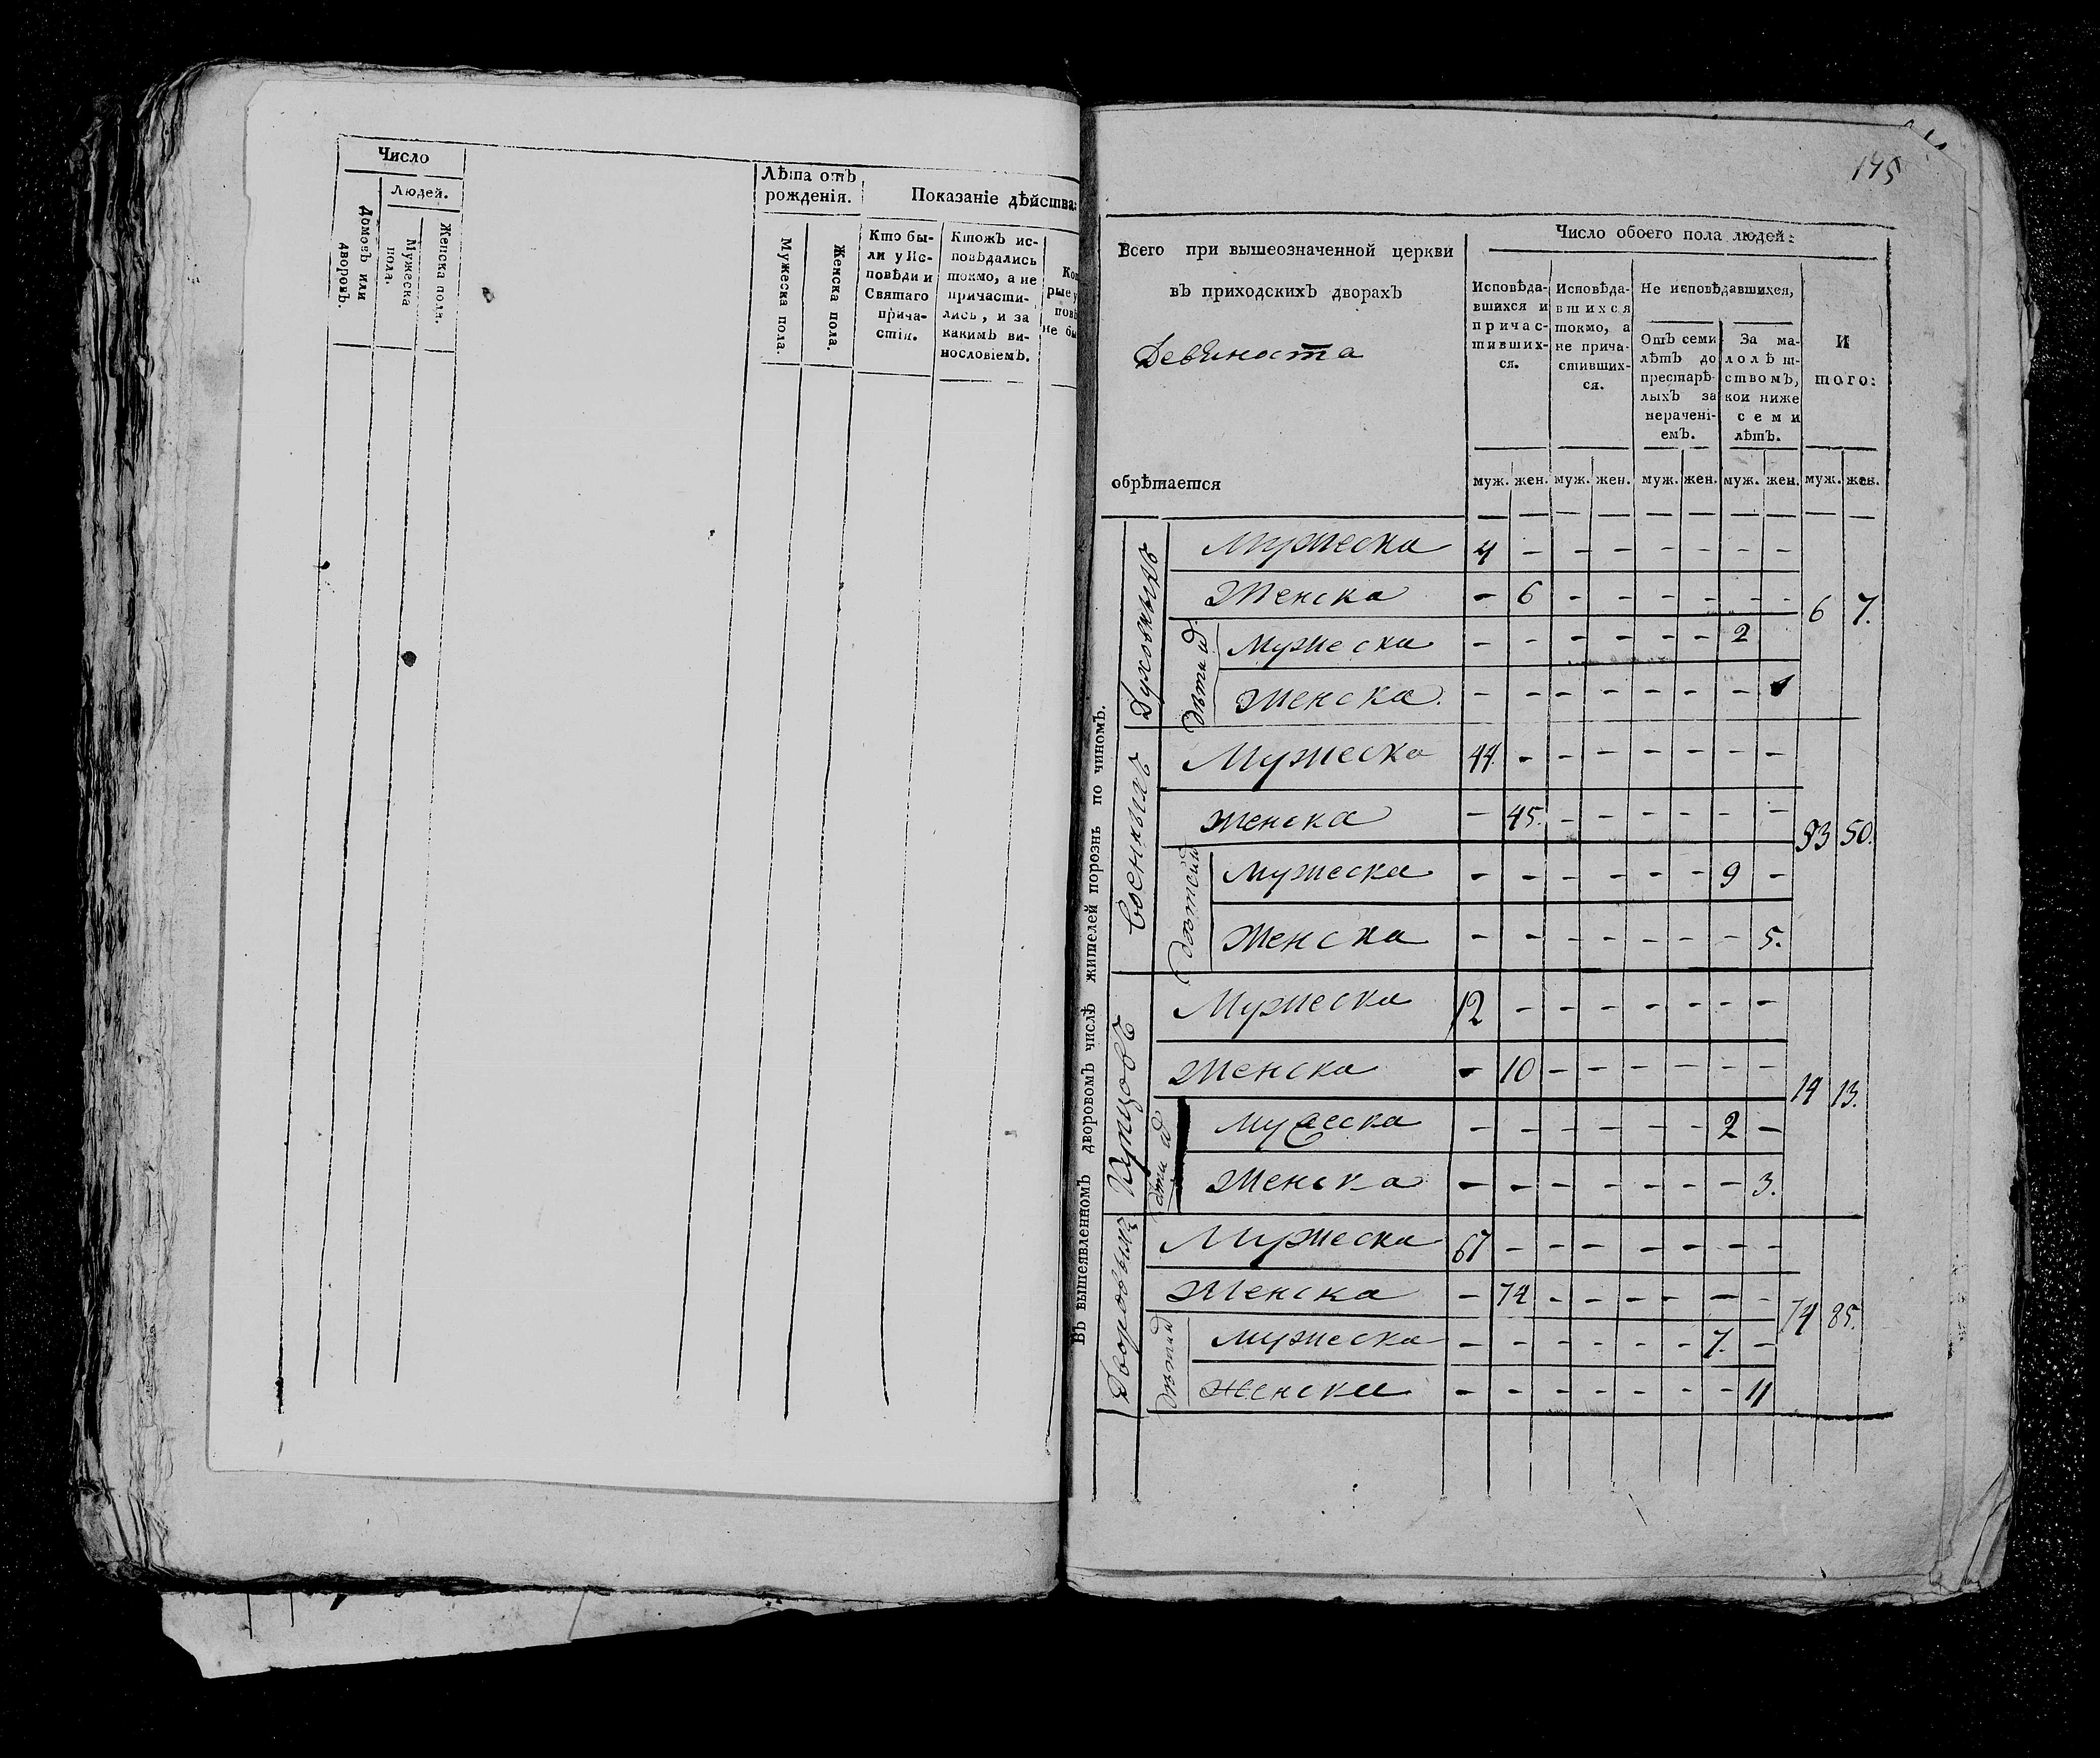 Число
Людей.
Домовъ или
дворовъ.
Мужеска
пола.
Женска пола.
Лѣта отъ
рожденія.
Мужеска пола.
Женска пола.
Показаніе дѣйства:
Кто бы-
ли у Ис-
повѣди и
Святаго
прича-
стія.
Ктожъ ис-
повѣдались
токмо, а не
причасти-
лись, и за
какимъ ви-
нословіемъ.
Ко
рые у
повѣ
не бы
145
Всего при вышеозначенной церкви
въ приходскихъ дворахъ
Девѣноста
обрѣтается
Число обоего пола людей:
Исповѣда-
вшихся и
причас-
тивших-
ся.
Исповѣда-
вшихся
токмо, а
не прича-
стивших-
ся.
Не исповѣдавшихся,
Отъ семи
лѣтъ до
престарѣ-
лыхъ за
нерачені-
емъ.
За ма-
лолѣт-
ствомъ,
кои ниже
семи
лѣтъ.
И
того:
муж. жен. муж. жен. муж. жен. муж. жен. муж. жен.
Въ вышеявленномъ дворовомъ числѣ жителей порознь по чиномъ.
Духовныхъ
Мужеска 4 - - - - - - -
Женска - 6 - - - - - - 6 7.
дѣтей
Мужеска - - - - - - 2
Женска. - - - - - - - 1
Военныхъ
Мужеска 44. - - - - - - -
Женска - 45. - - - - - - 53 50.
дѣтей
Мужеска - - - - - - 9 -
Женска - - - - - - - 5.
Купцовъ
Мужеска 12 - - - - - - -
Женска - 10 - - - - - - 14 13.
дѣтей
Мужеска - - - - - - 2 -
Женска - - - - - - - 3.
Дворовыхъ
Мужеска 67 - - - - - - -
Женска - 74 - - - - - - 74 85.
дѣтей
Мужеска - - - - - - 7. -
Женска - - - - - - - 11